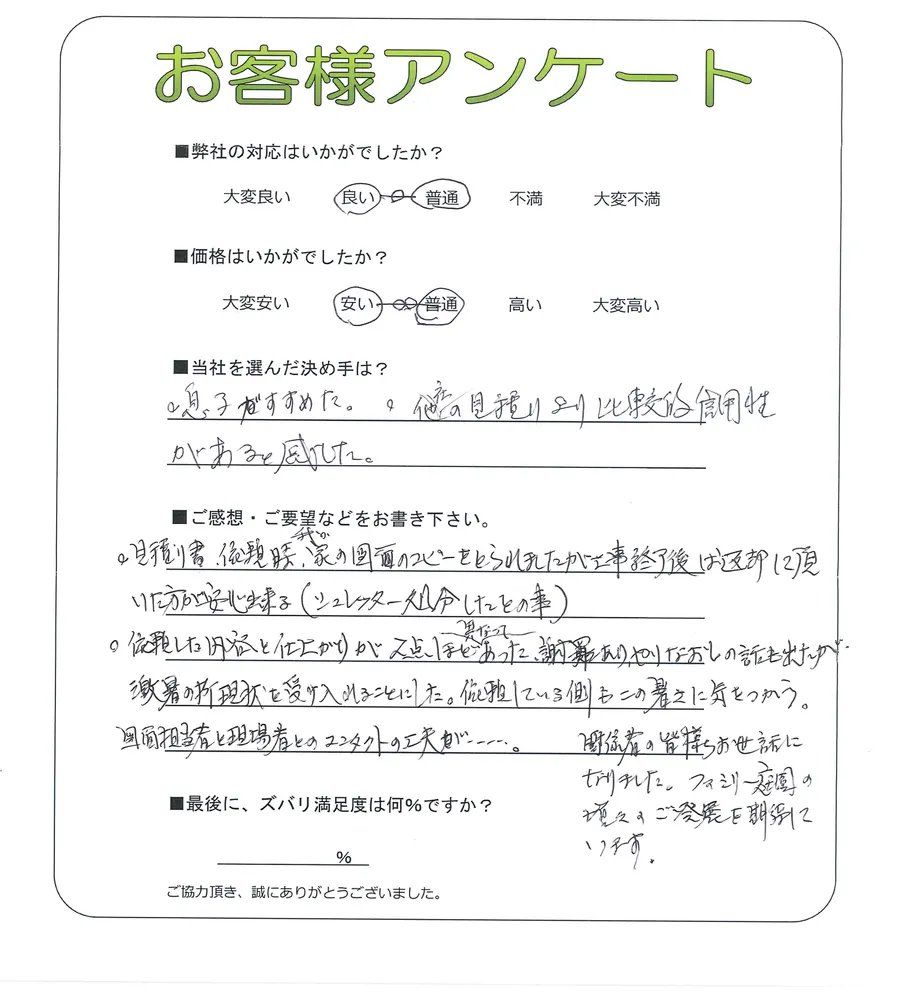 お客様アンケート
■弊社の対応はいかがでしたか？
大変良い 良い 普通 不満 大変不満
■価格はいかがでしたか？
大変安い 安い 普通 高い 大変高い
■当社を選んだ決め手は？
○息子がすすめた。 ○他社の見積りより比較的信用性
があると感じた。
■ご感想・ご要望などをお書き下さい。
○見積り書、依頼時、我が家の図面のコピーをとられましたが工事終了後は返却して頂
いた方が安心出来る(シュレッター処分したとの事)
○依頼した内容と仕上がりが2点ほど異なってあった、謝罪ありやりなおしの話も出たが
激暑の折現状を受け入れることにした。依頼している側もこの暑さに気をつかう。
図面担当者と現場者とのコンタクトの工夫が----。
関係者の皆様らお世話に
なりました。ファミリー庭園の
増々のご発展を期待して
います。
■最後に、ズバリ満足度は何%ですか？
%
ご協力頂き、誠にありがとうございました。